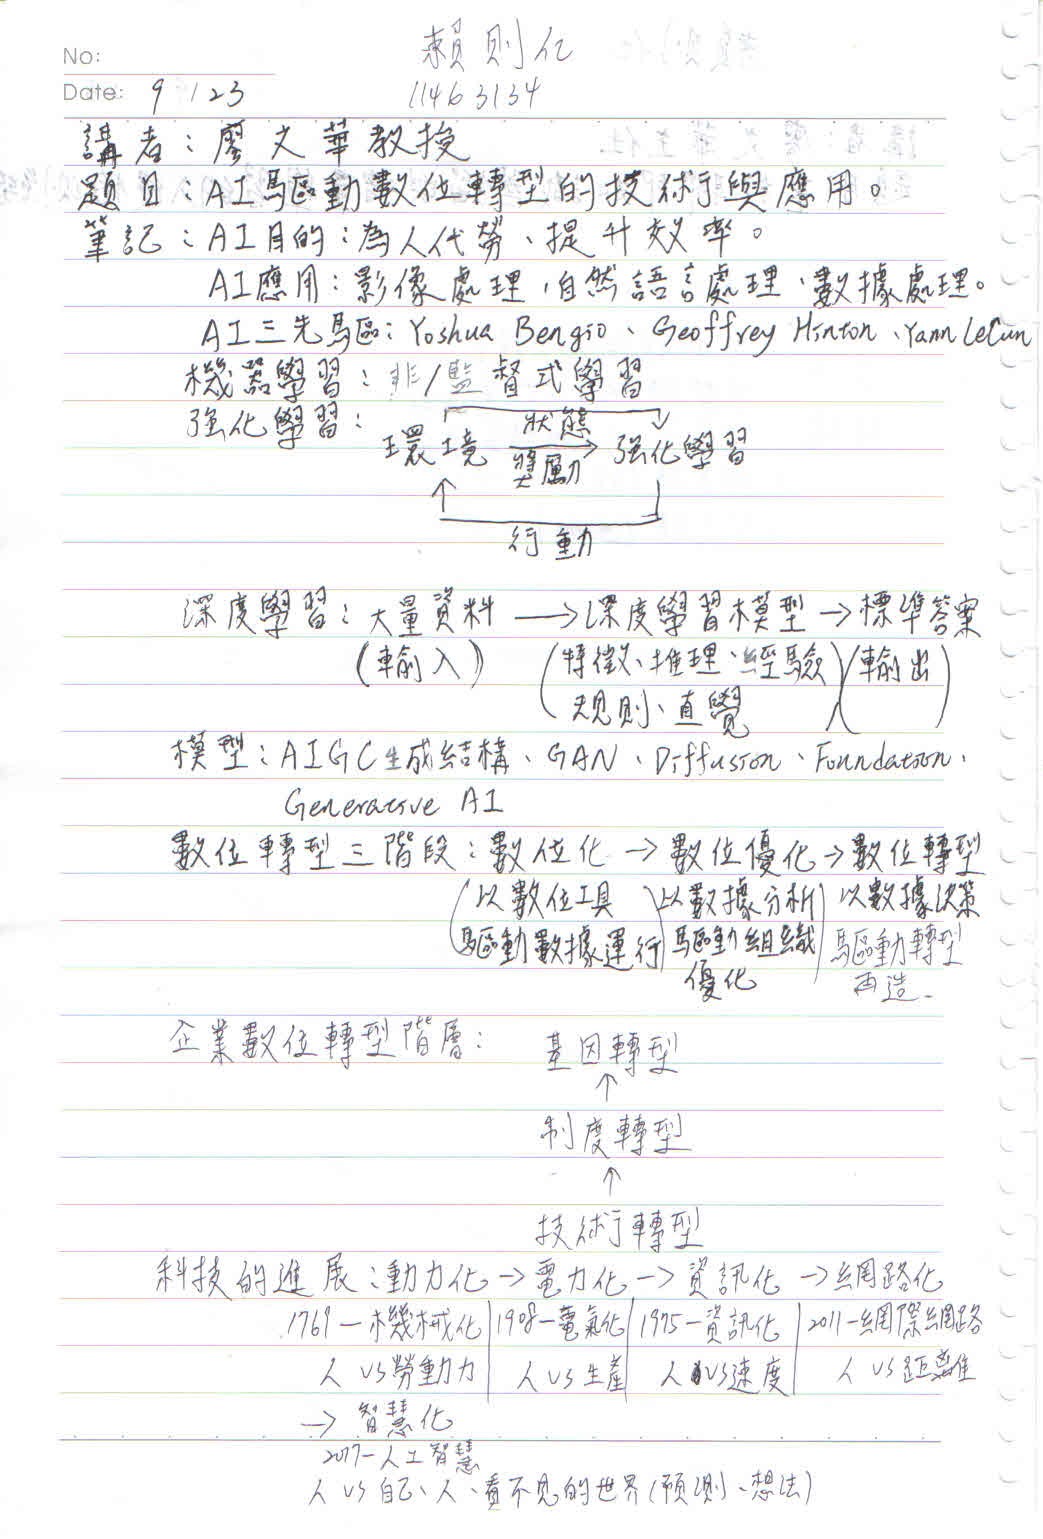 賴則仁
No:
Date: 9/23
11463134
講者：廖文華教授
題目：AI驅動數位轉型的技術與應用。
筆記：AI目的：為人代勞、提升效率。
AI應用：影像處理、自然語言處理、數據處理。
AI三先驅：Yoshua Bengio、Geoffrey Hinton、Yann LeCun
機器學習：非/監督式學習
強化學習：
狀態
環境 → 強化學習
獎勵
↑
行動
深度學習：大量資料 → 深度學習模型 → 標準答案
(輸入) (特徵、推理、經驗 (輸出)
規則、直覺)
模型：AIGC生成結構、GAN、Diffusion、Foundation、
Generative AI
數位轉型三階段：數位化 → 數位優化 → 數位轉型
(以數位工具 以數據分析 以數據決策
驅動數據運行 驅動組織 驅動轉型
優化 再造.
企業數位轉型階層： 基因轉型
↑
制度轉型
↑
技術轉型
科技的進展：動力化 → 電力化 → 資訊化 → 網路化
1769－機械化 1908－電氣化 1975－資訊化 2011－網際網路
人 vs 勞動力 人 vs 生產 人 vs 速度 人 vs 距離
→ 智慧化
2017－人工智慧
人 vs 自己、人、看不見的世界(預測、想法)